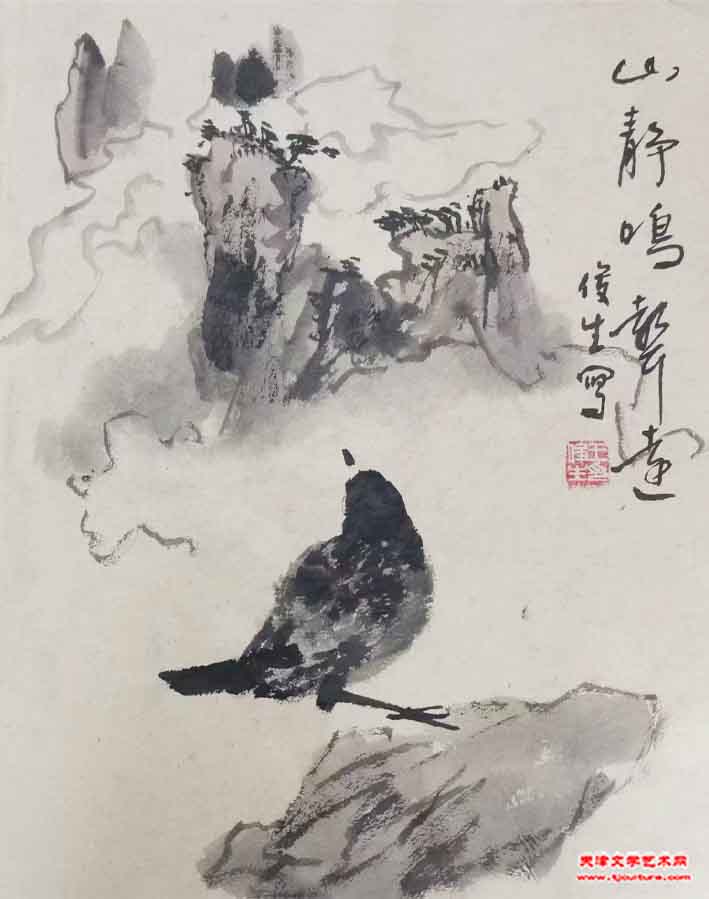 山静鸣聲遠
俊生写
天津文学艺术网
www.tjculture.com